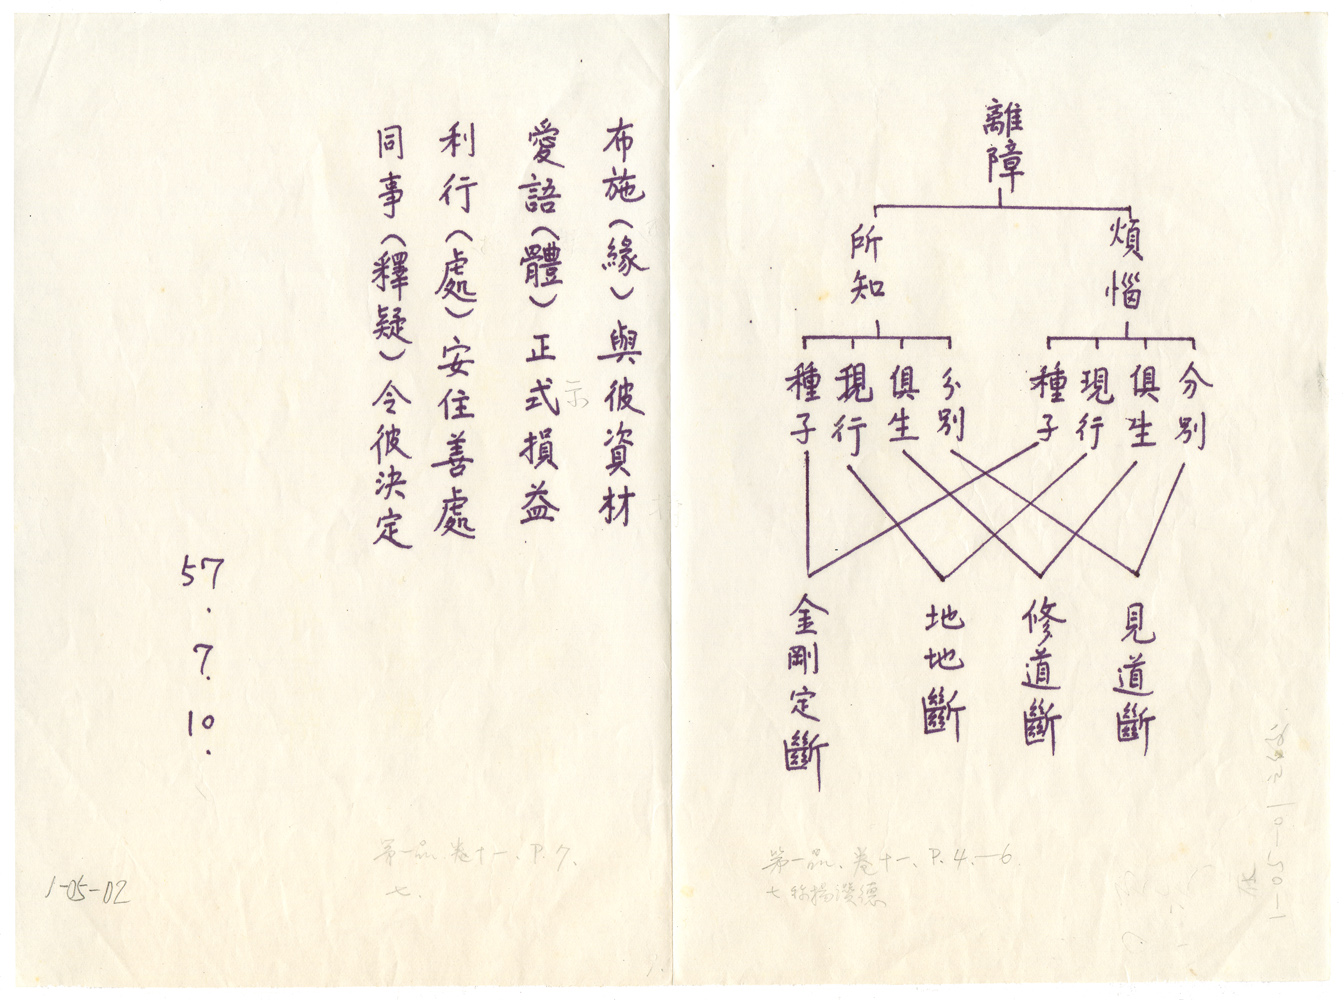 離障
煩惱
所知
分別
俱生
現行
種子
分別
俱生
現行
種子
見道斷
修道斷
地地斷
金剛定斷
第一品、卷十一、P.4.—6
七稱揚讚德
布施（緣）與彼資材
愛語（體）正式損益
示
利行（處）安住善處
同事（釋疑）令彼決定
57.7.10.
第一品、卷十一、P.7.
七.
1-05-02